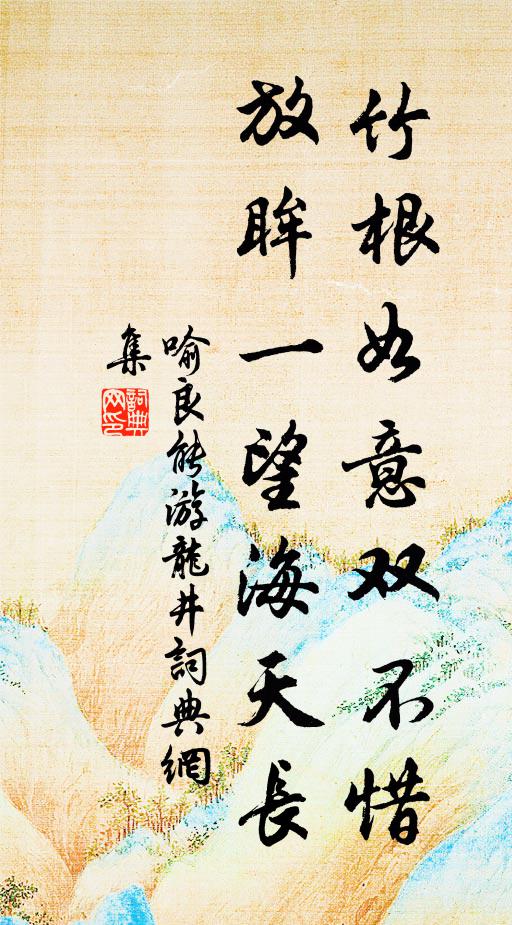 竹根如意双不惜
放眸一望海天長
喻良能游龍井詞典網
集
詞典網印